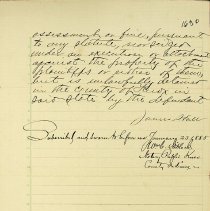 1630
assessment, or fine, pursuant
to any statute, nor seized
under an execution or attachment
against the property of the
plaintiffs or either of them,
but is unlawfully detained
in the County of Knox in
said State by the defendant
James
Subscribed and sworn to before me January 23 1885
Notary Public Knox
County Indiana